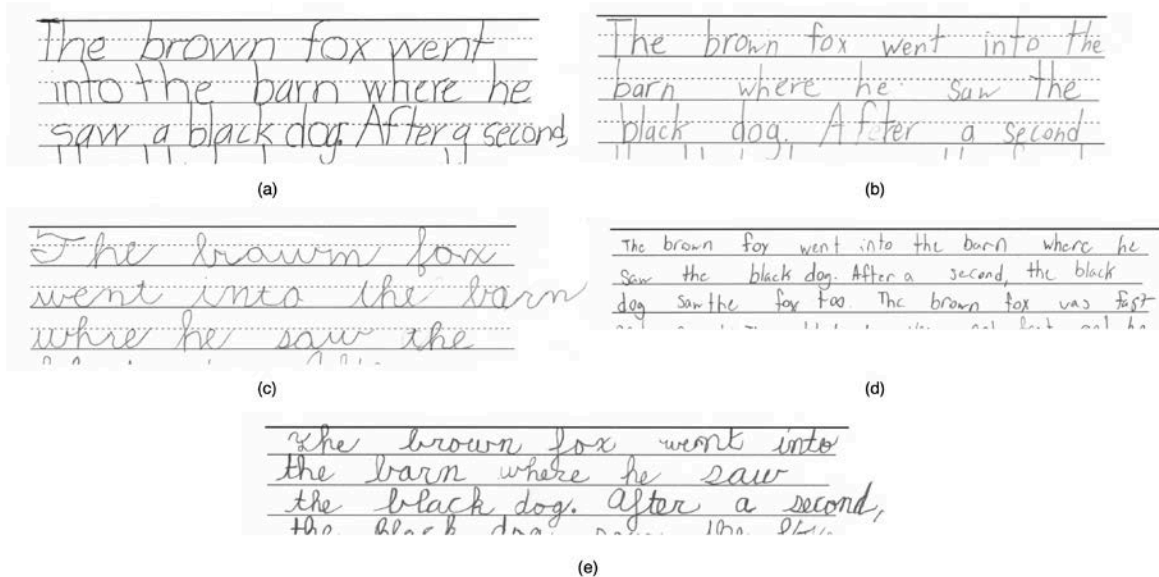 The brown fox went
into the barn where he
saw a black dog. After a second,
(a)
The brown fox went into the
barn where he saw the
black dog. After a second
(b)
The brown fox
went into the barn
whre he saw the
(c)
The brown foy went into the barn where he
saw the black dog. After a second, the black
dog saw the fox too. The brown fox was fast
(d)
The brown fox went into
the barn where he saw
the black dog. After a second,
(e)